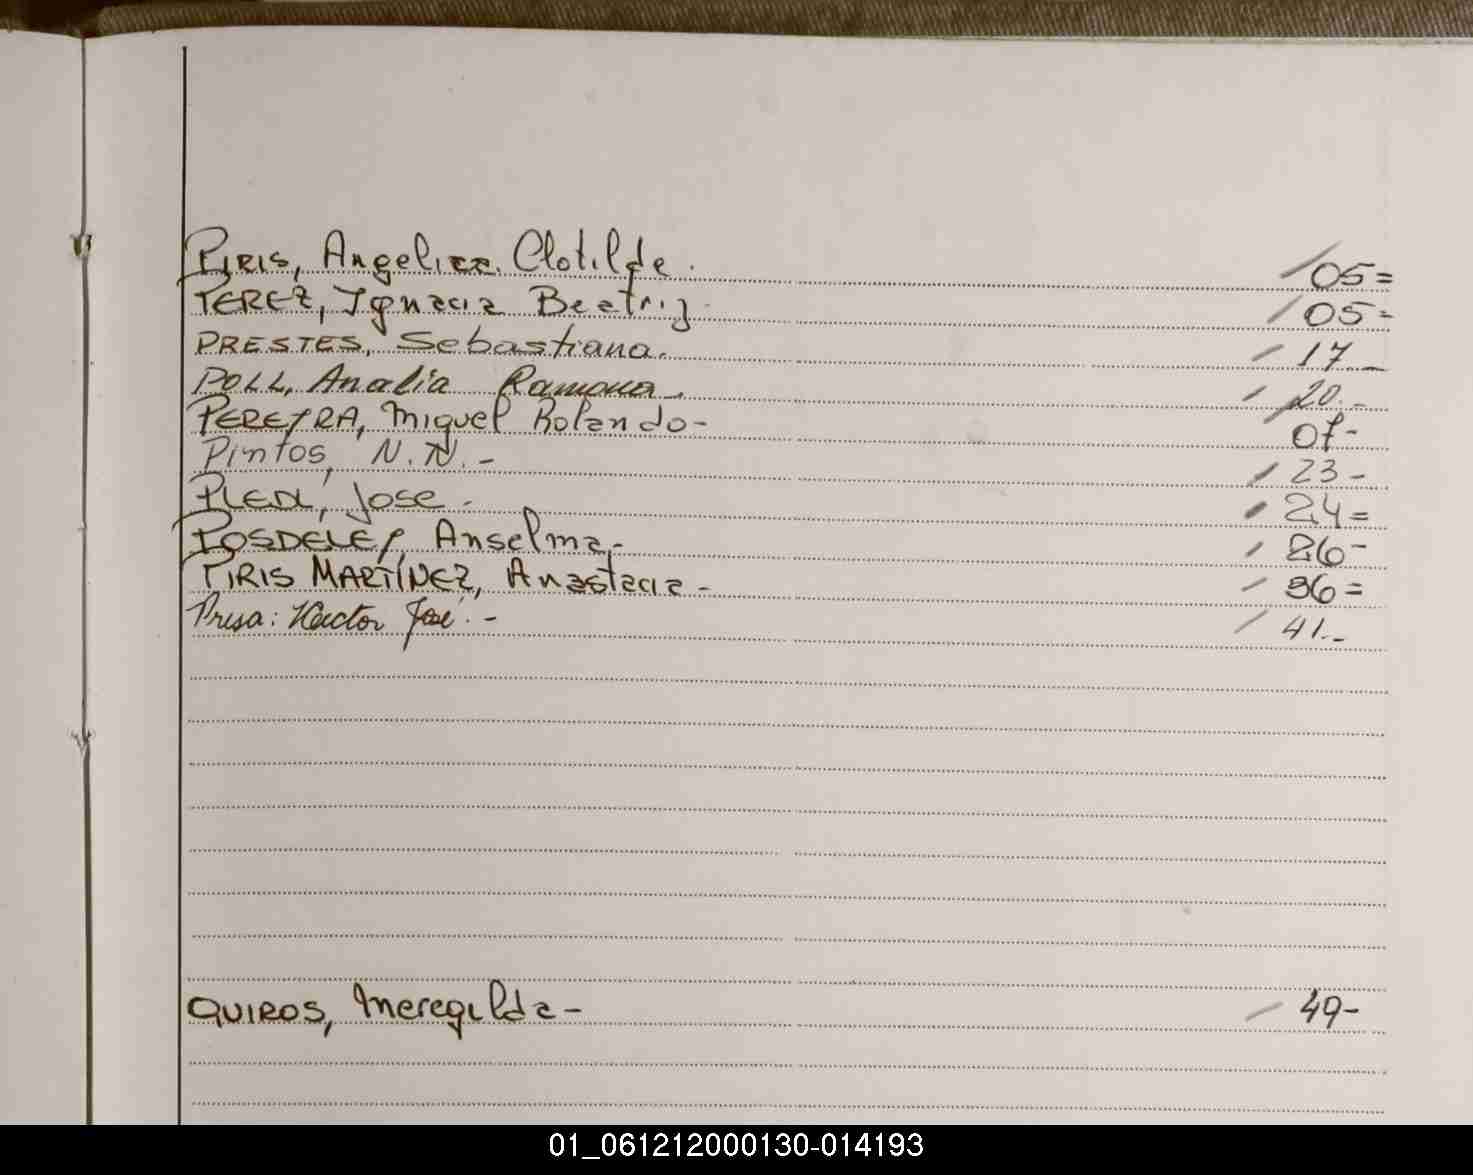 PIRIS, Angelica Clotilde. 05=
PEREZ, Ignacia Beatriz. 05=
PRESTES, Sebastiana. 17
POLL, Analia Ramona. 20.-
PEREYRA, Miguel Rolando- 07-
Pintos, N.N.- 23-
José. 24=
Anselma.- 26-
PIRIS MARTÍNEZ, Anastacia- 36=
Hector José.- 41.-
QUIROS, Meregilda- 49-
01_061212000130-014193